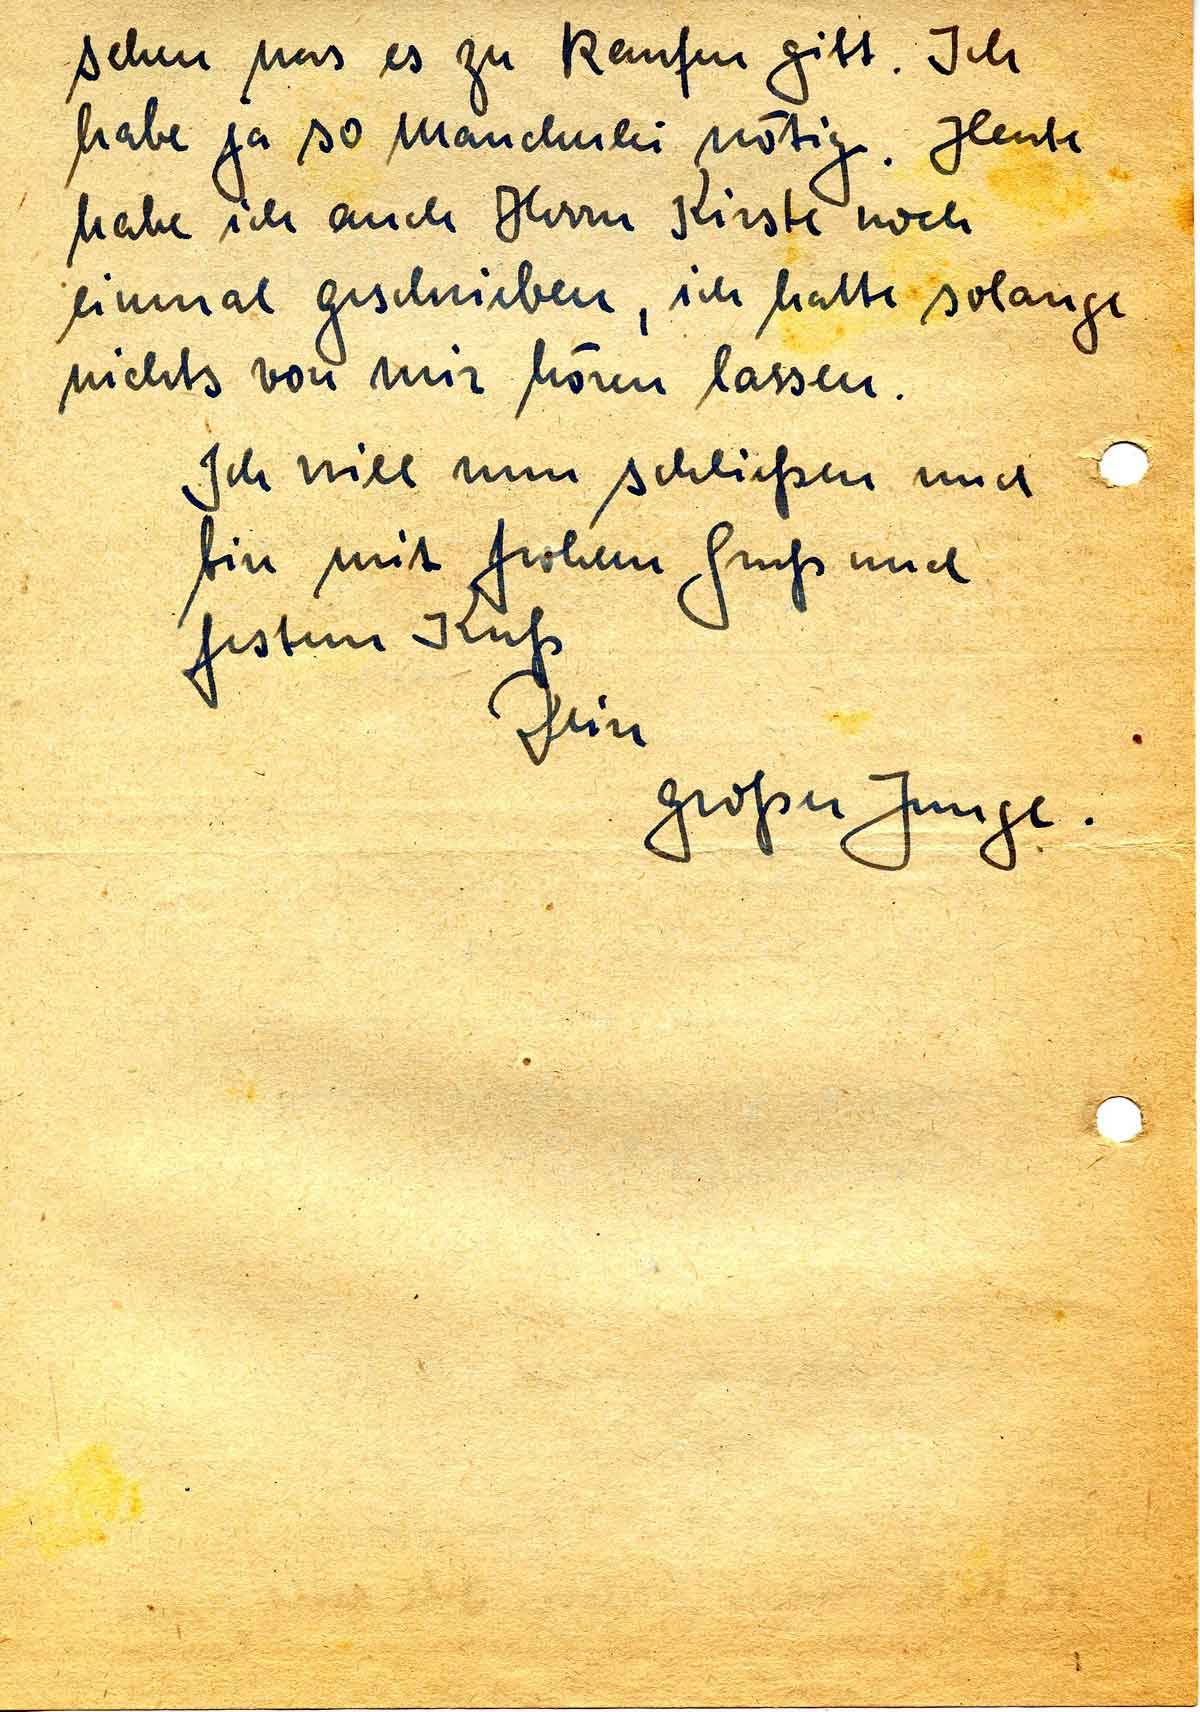 sehen was es zu kaufen gibt. Ich
habe ja so Mancherlei nötig. Heute
habe ich auch Herrn Kirste noch
einmal geschrieben, ich hatte solange
nichts von mir hören lassen.
Ich will nun schließen und
bin mit frohem Gruß und
festem Kuß
Dein
großer Junge.